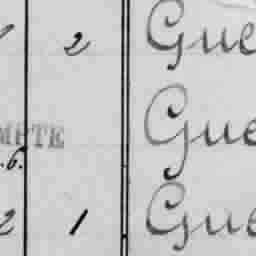 2 Gue
Gue
MPTE
.6.
2 1 Gue